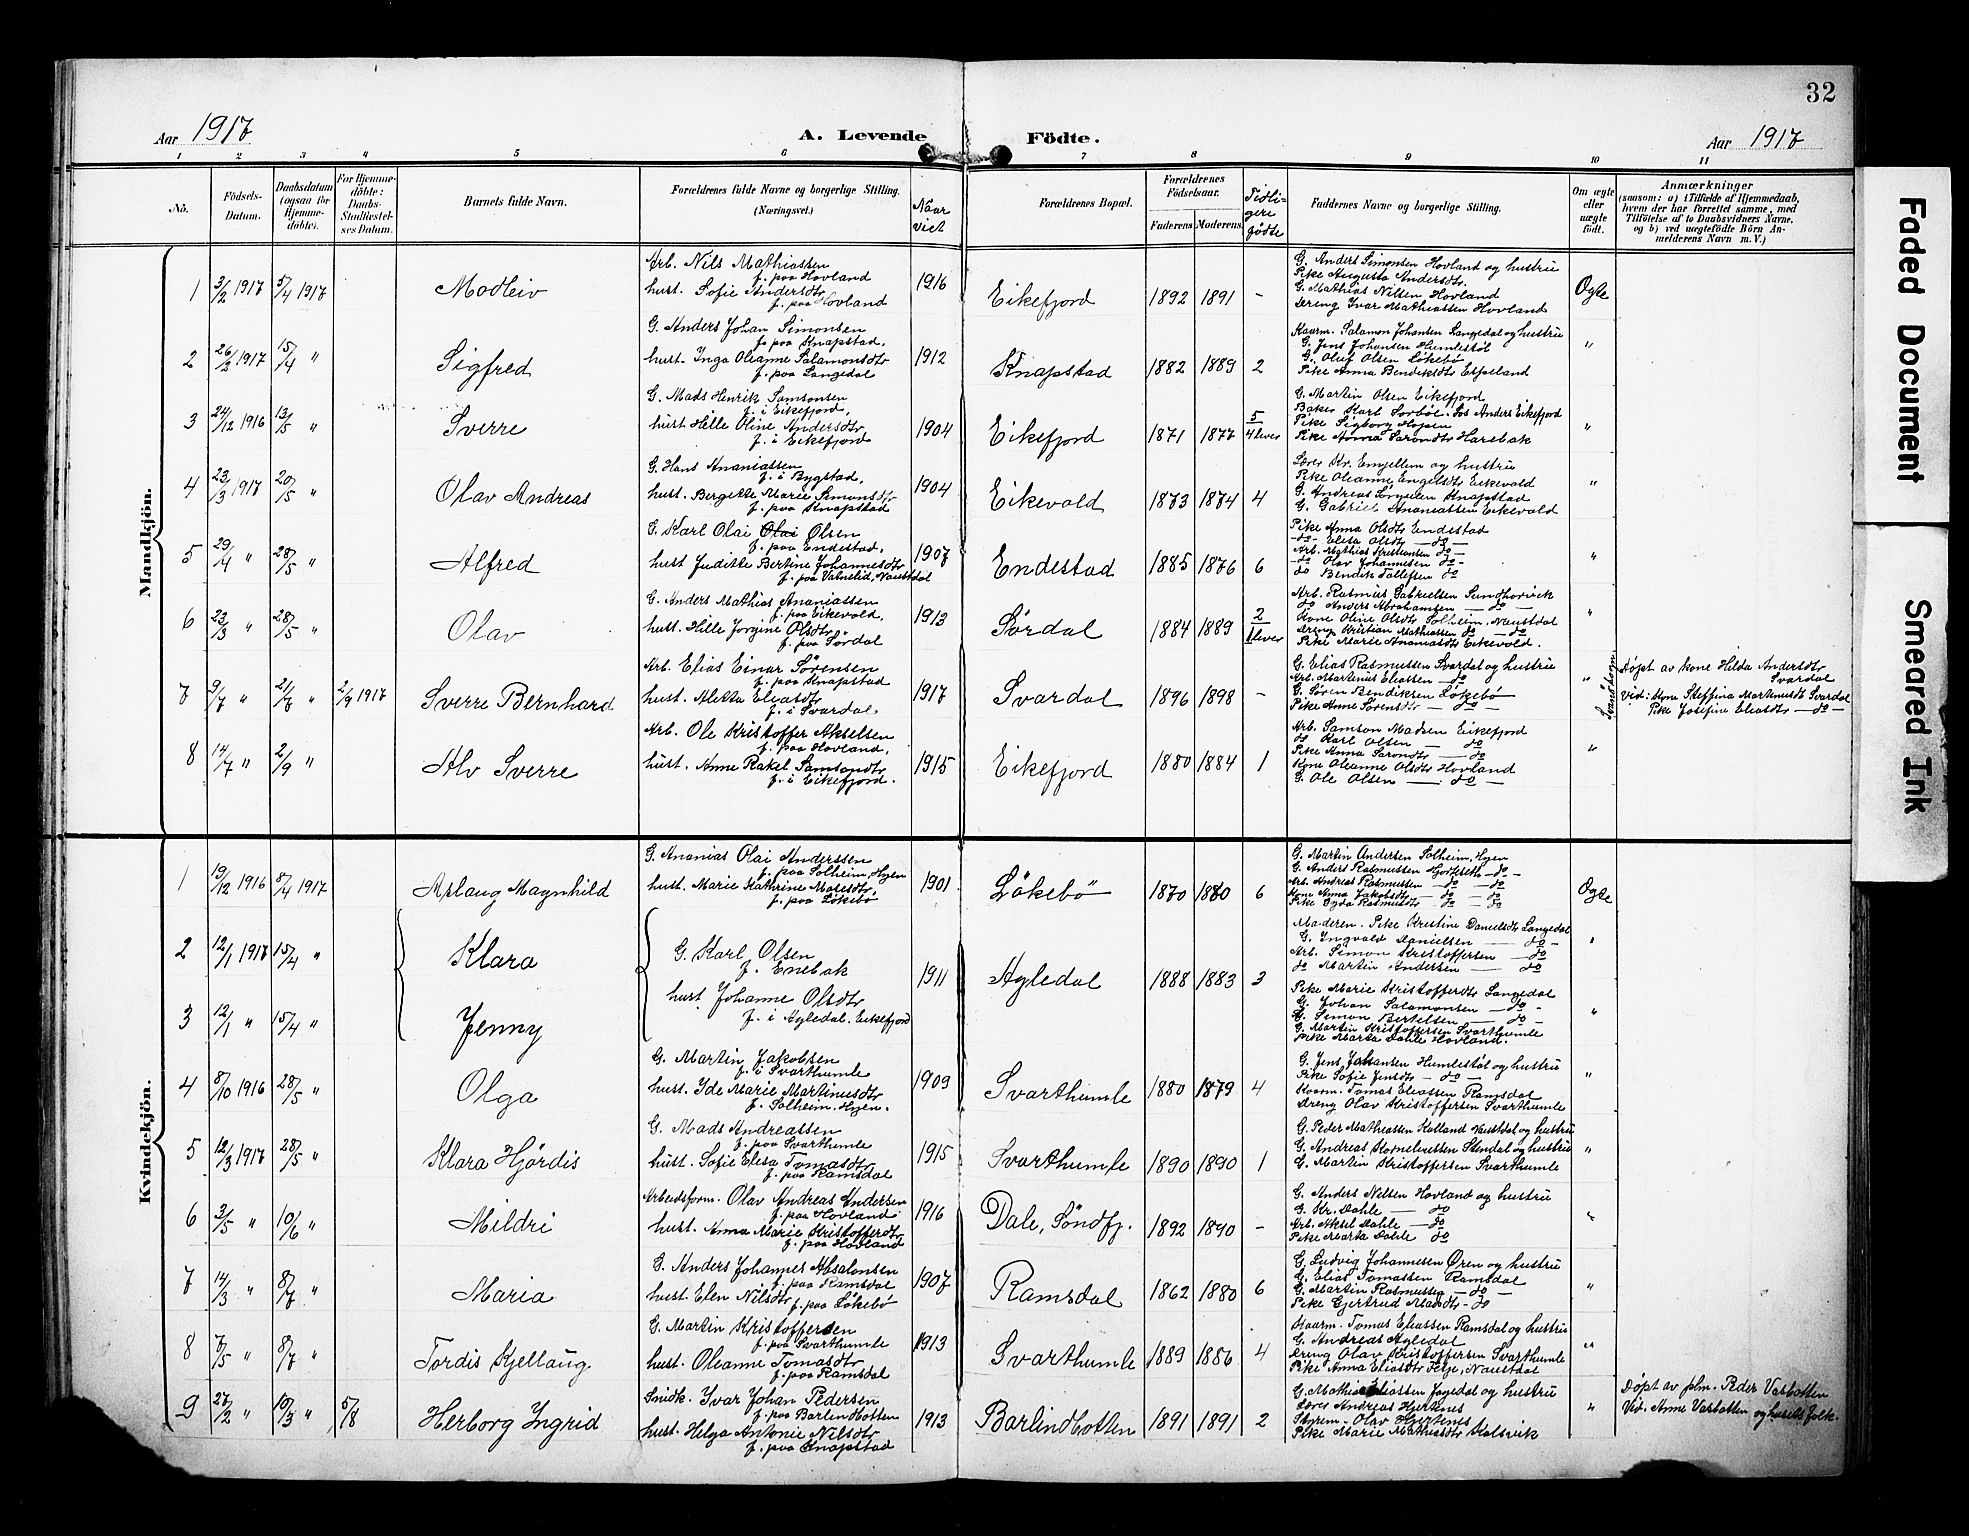 32
Aar 1917
A. Levende Födte.
Aar 1917
1 2 3 4 5 6 7 8 9 10 11
No.
Födsels-Datum.
Daabsdatum (ogsaa for Hjemmedöbte).
For Hjemmedöbte: Daabs-Stadfæstelses Datum.
Barnets fulde Navn.
Forældrenes fulde Navne og borgerlige Stilling.
(Næringsvei.)
Naar viet
Forældrenes Bopæl.
Forældrenes Födselsaar.
Faderens Moderens
Tidligere fødte
Faddernes Navne og borgerlige Stilling.
Om ægte eller uægte födt.
Anmærkninger
(saasom: a) i Tilfælde af Hjemmedaab, hvem der har forrettet samme, med Tilföielse af to Daabsvidners Navne, og b) ved uægtefödte Börn Anmelderens Navn m. V.)
Mandkjön.
1 3/2 1917 5/4 1917 Modleiv
Arb. Nils Mathiassen
f. paa Hovland
hust. Sofie Andersdtr
f. paa Hovland
1916 Eikefjord 1892 1891 -
G. Anders Simonsen Hovland og hustru
Pike Augusta Andersdtr.
G. Mathias Nilsen Hovland
Dreng Ivar Mathiassen Hovland
Ogte
2 26/2 1917 15/4 " Sigfred
G. Anders Johan Simonsen
f. paa Knapstad,
hust. Inga Oleanne Salamonsdtr
f. paa Langedal
1912 Knapstad 1882 1889 2
Kaarm. Salamon Johansen Langedal og hustru
G. Jens Johansen Humlestøl
G. Oluf Olsen Løkebø
Pike Anna Bendiksdtr Espeland
"
3 24/12 1916 13/5 " Sverre
G. Mads Henrik Samsonsen
f. i Eikefjord,
hust Hille Oline Andersdtr,
f. i Eikefjord
1904 Eikefjord 1871 1877 5 4 lever
G. Martin Olsen Eikefjord
Baker Karl Sorbøl. Sos Anders Eikefjord
Pike Sigborg Hopen
Pike Anna Sarondtr Harebak
"
4 23/3 1917 20/5 " Olav Andreas
G. Hans Ananiassen
f. i Bygstad,
hust. Bergette Marie Simonsdtr
f. paa Knapstad
1904 Eikevold 1873 1874 4
Lærer Kr. Emjellem og hustru
Pike Oleanne Engelsdtr Eikevold
G. Andreas Sørensen Knapstad
G. Gabriel Ananiassen Eikevold
"
5 29/4 " 28/5 " Alfred
G. Karl Olai Olai Olsen
f. paa Endestad,
hust Juditte Bertine Johannesdtr
f. paa Vatnelid, Naustdal
1907 Endestad 1885 1876 6
Pike Anna Olsdtr Endestad
-do- Elisa Olsdtr -do-
Arb. Mathias Kristiansen do-
-do Olav Johannesen do-
do Bendik Tollefsen do
"
6 23/3 " 28/5 " Olav
G. Anders Mathias Ananiassen
f. paa Eikevold,
hust. Hille Jorgine Olsdtr,
f. paa Sørdal
1913 Sørdal 1884 1889 2 1 lever
Arb. Rasmus Gabrielsen Sundhorvik
do Anders Abrahamsen - do -
Kone Oline Olsdtr Solheim, Naustdal
Dreng Kristian Mathiassen do - do
Pike Marie Ananiasdtr Eikevold.
"
7 9/7 " 21/7 " 2/9 1917 Sverre Bernhard
Arb. Elias Einar Sørensen
f. paa Knapstad
hust. Aletta Eliasdtr
f. i Svardal.
1917 Svardal 1896 1898 -
G. Elias Rasmussen Svardal og hustru
Arb. Martinus Eliassen -do
G. Søren Bendiksen Løkebø
Pike Anne Sørensdtr - do -
"
Døpt av kone Hilda Andersdtr
Svardal
Vid: Kone Steffina Martinusdt Svardal
Pike Josefine Eliasdtr -do-
8 14/7 " 2/9 " Alv Sverre
Arb. Ole Kristoffer Akselsen
f. paa Hovland,
hust. Anne Rakel Samsondtr
f. i Eikefjord.
1915 Eikefjord 1880 1884 1
Arb. Samson Madsen Eikefjord
do Karl Olsen - do
Pike Anna Sarondtr - do
Kone Oleanne Olsdtr Hovland
G. Ole Olsen - do -
"
Kvindekjön.
1 19/12 1916 8/4 1917 Aslaug Magnhild
G. Ananias Olai Anderssen
f. paa Solheim, Hyen
hust. Marie Kathrine Matesdtr,
f. paa Løkebø
1901 Løkebö 1870 1880 6
G. Martin Andersen Solheim, Hyen
G. Anders Rasmussen Hjorteseth -do-
Arb. Andreas Rasmussen -do -do
Kone Anna Jakobsdtr - do - do
Pike Gyda Rasmusdtr - do - do
Ogte
2 12/1 1917 15/4 " Klara
3 12/1 " 15/4 " Jenny
G. Karl Olsen
f. Enebak
hust. Johanne Olsdtr
f. i Agledal. Eikefjord
1911 Agledal 1888 1883 3
Moderen. Pike Kristine Danielsdtr Langedal
G. Ingvald Danielsen - do -
Arb. Simon Kristoffersen - do
do Martin Andersen - do
Pike Marie Kristofferdtr Langedal
G. Johan Salamonsen - do -
G. Simon Bertelsen - do -
G. Martin Kristoffersen Svarthumle
Pike Marta Dahle Hovland.
"
4 8/10 1916 28/5 " Olga
G. Martin Jakobsen
f. i Svarthumle
hust. Ide Marie Martinusdtr
f. Solheim. Hyen.
1909 Svarthumle 1880 1879 4
G. Jens Johansen Humlestøl og hustru
Pike Sofie Jensdtr - do -
Kaarm. Tomas Eliassen Ramsdal
Dreng Olav Kristoffersen Svarthumle
"
5 12/3 1917 28/5 " Klara Hjørdis
G. Mads Andreassen
f. paa Svarthumle
hust. Sofie Elisa Tomasdtr
f. paa Ramsdal
1915 Svarthumle 1890 1890 1
G. Peder Mathiassen Kalland Naustdal og hustru
G. Andreas Korneliussen Stendal og hustru
G. Martin Kristoffersen Svarthumle
"
6 3/5 " 10/6 " Mildri
Arbeidsform. Olav Andreas Andersen
f. paa Hovland
hust. Anna Marie Kristofferdtr
f. paa Hovland
1916 Dale, Søndfj. 1892 1890 -
G. Anders Nilsen Hovland og hustru
G. Kr. Dahle - do
Arb. Aksel Dahle - do
Pike Marta Dahle do
"
7 14/3 " 8/7 " Maria
G. Anders Johannes Absalonsen
f. paa Ramsdal
hust. Elen Nilsdtr
f. paa Løkebø
1907 Ramsdal 1862 1880 6
G. Ludvig Johannesen Øren og hustru
G. Elias Tomassen Ramsdal
G. Martin Rasmussen - do -
Pike Gjertrud Mandtr - do
"
8 7/5 " 8/7 " Tordis Kjellaug
G. Martin Kristoffersen
f. paa Svarthumle
hust. Oleanne Tomasdtr
f. paa Ramsdal
1913 Svarthumle 1889 1886 4
Kaarm. Tomas Eliassen Ramsdal og hustru
G. Andreas Agledal
Dreng Olav Kristoffersen Svarthumle
Pike Anna Eliasdtr Naustdal
"
9 27/2 " 10/3 " 5/8 Herborg Ingrid
Smidk. Ivar Johan Pedersen
f. paa Barlindbotten
hust. Helga Antonie Nilsdtr
f. paa Knapstad
1913 Barlindbotten 1891 1891 2
G. Mathias Eliassen Fagedal og hustru
Lærer Andreas Hjertenes
Styrem. Olav Hjertenes
Pike Marie Mathiasdtr Kalsvik
"
Døpt av plm. Peder Vasbotten
Vid. Anne Vasbotten og husets folk.
Faded Document
Smeared Ink